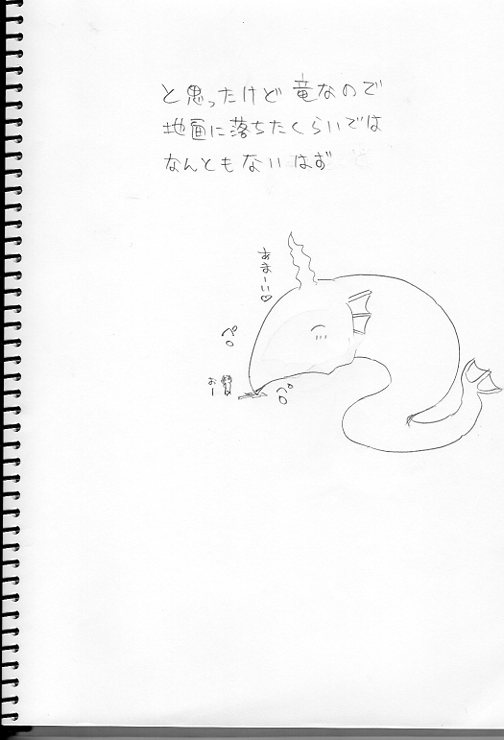 と思ったけど 竜なので
地面に落ちたくらいでは
なんともない はず
あまーい♡
ペロ
おー
ペロ